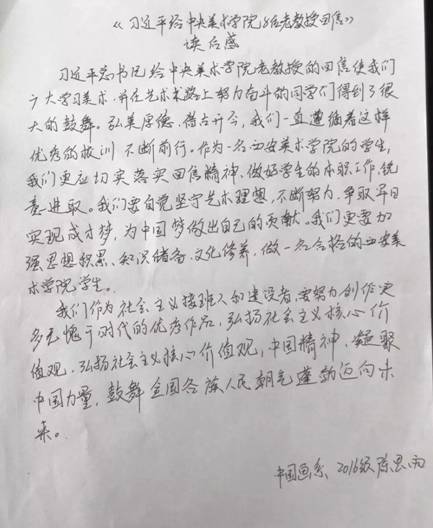 《习近平给中央美术学院8位老教授回信》
读后感
习近平总书记给中央美术学院老教授的回信使我们
广大学习美术,并在艺术道路上努力奋斗的同学们得到了很
大的鼓舞。弘美厚德、借古开今,我们一直遵循着这样
优秀的校训不断前行。作为一名西安美术学院的学生,
我们更应切实落实回信精神,做好学生的本职工作,锐
意进取。我们要自觉坚守艺术理想,不断努力,争取早日
实现成才梦,为中国梦做出自己的贡献。我们更要加
强思想积累、知识储备、文化修养,做一名合格的西安美
术学院学生。
我们作为社会主义接班人和建设者,要努力创作更
多无愧于时代的优秀作品,弘扬社会主义核心价
值观,弘扬社会主义核心价值观,中国精神,凝聚
中国力量,鼓舞全国各族人民朝气蓬勃迈向未
来。
中国画系 2016级 陈思雨